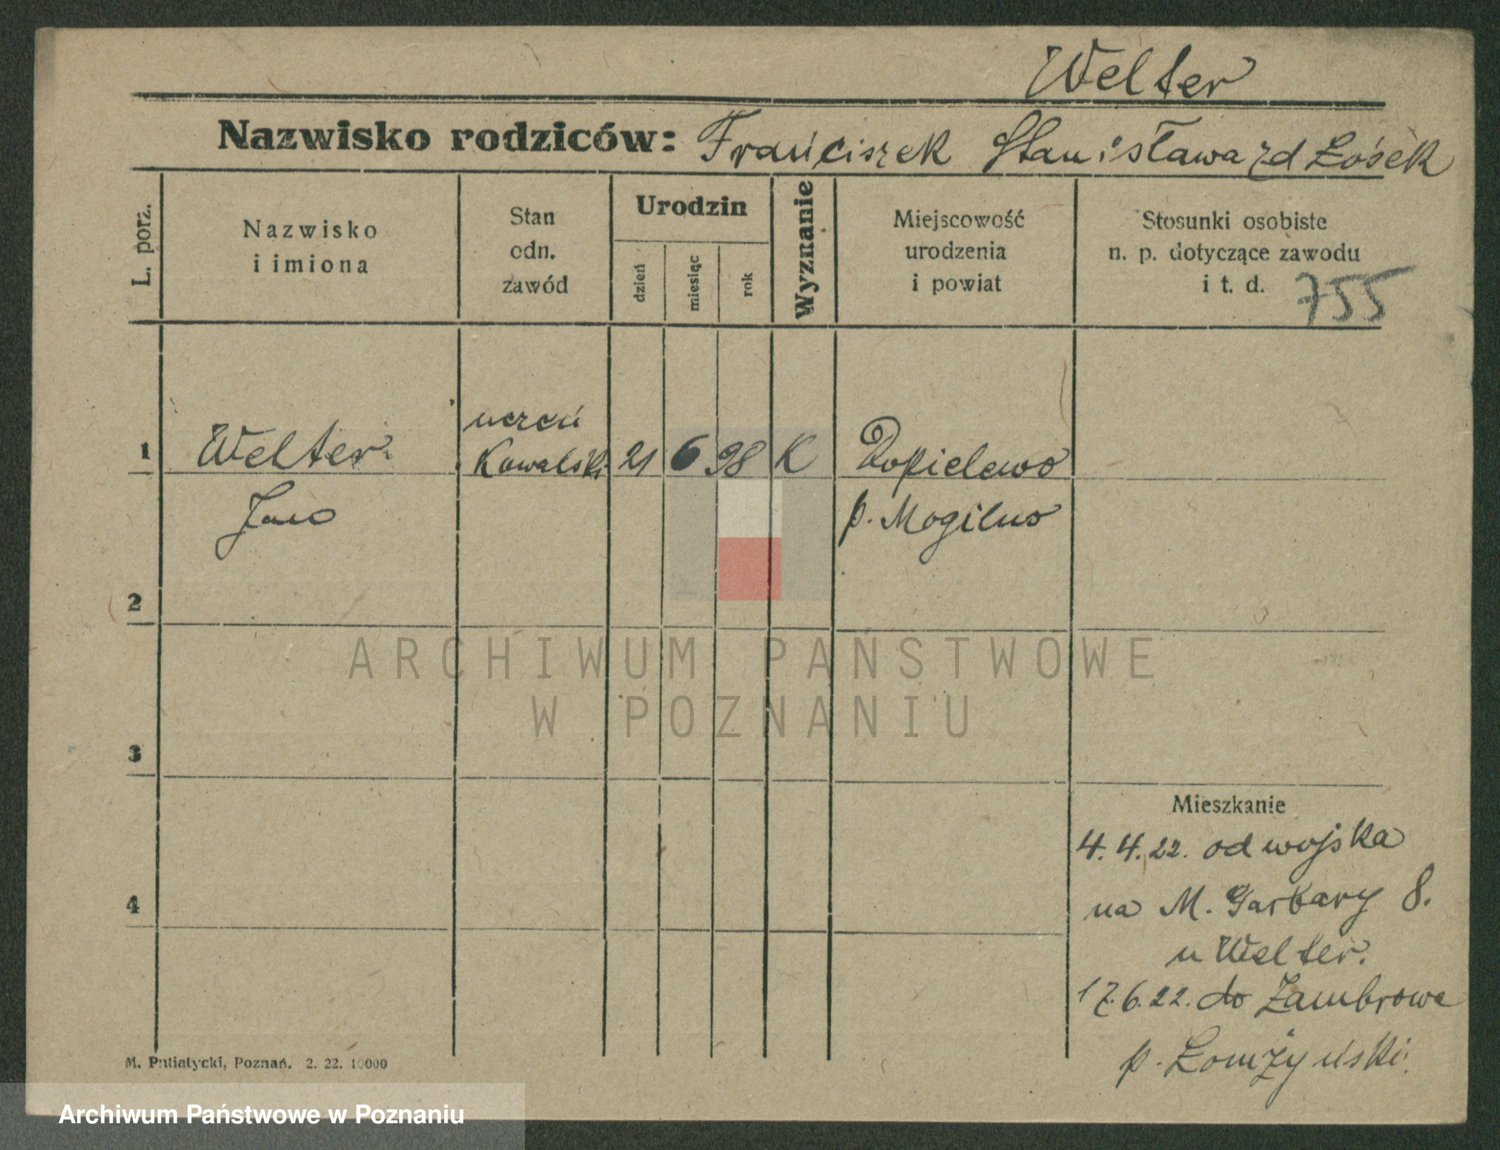 Welter
Nazwisko rodziców: Franciszek Stanisława zd Łosek
L. porz.
Nazwisko
i imiona
Stan
odn.
zawód
Urodzin
dzień
miesiąc
rok
Wyznanie
Miejscowość
urodzenia
i powiat
Stosunki osobiste
n. p. dotyczące zawodu
i t. d. 755
1 Welter uczeń Kowalski 21 6 98 K Popielewo
Jan p. Mogilno
2
3
4
Mieszkanie
4.4.22. od wojska
na M. Garbary 8.
u Welter.
17.6.22. do Zambrowa
p. Łomżyński.
M. Putiatycki, Poznań. 2. 22. 10000
ARCHIWUM PAŃSTWOWE
W POZNANIU
Archiwum Państwowe w Poznaniu